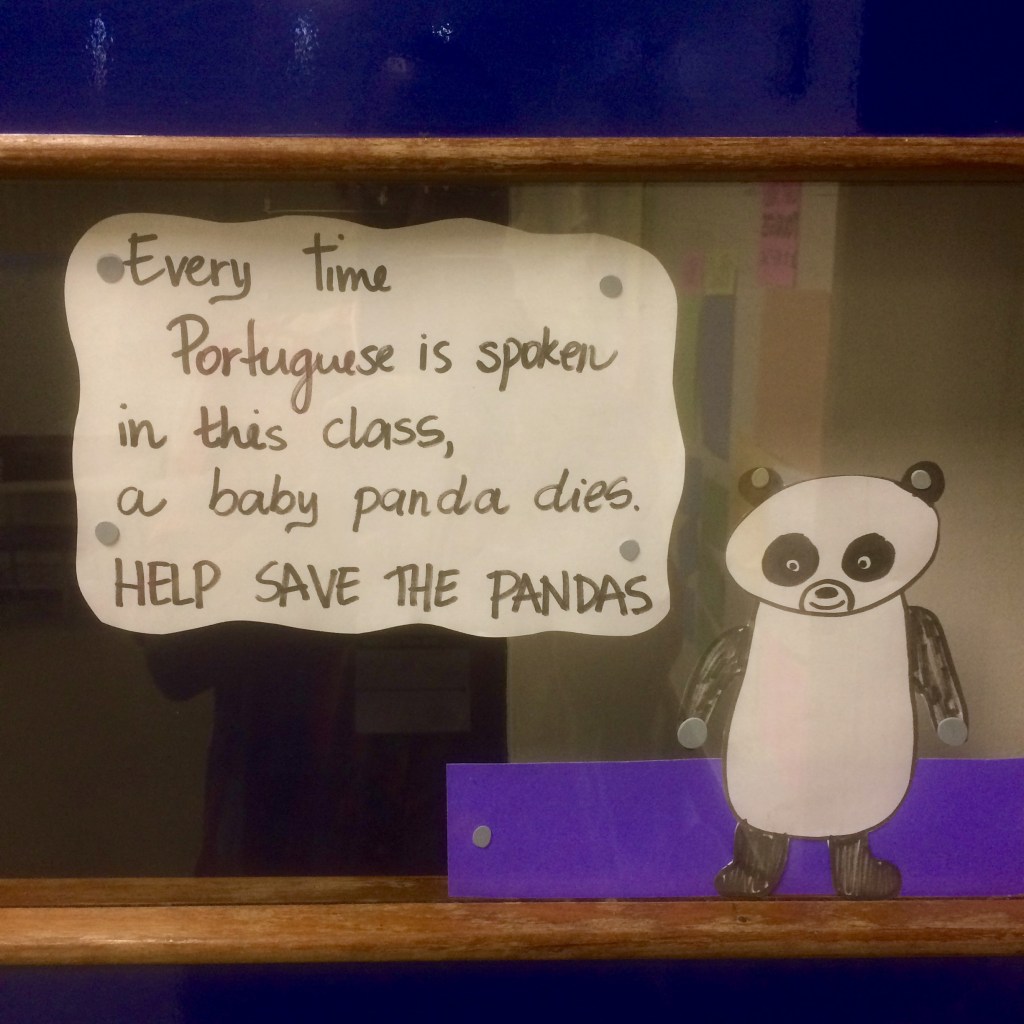 Every time
Portuguese is spoken
in this class,
a baby panda dies.
HELP SAVE THE PANDAS